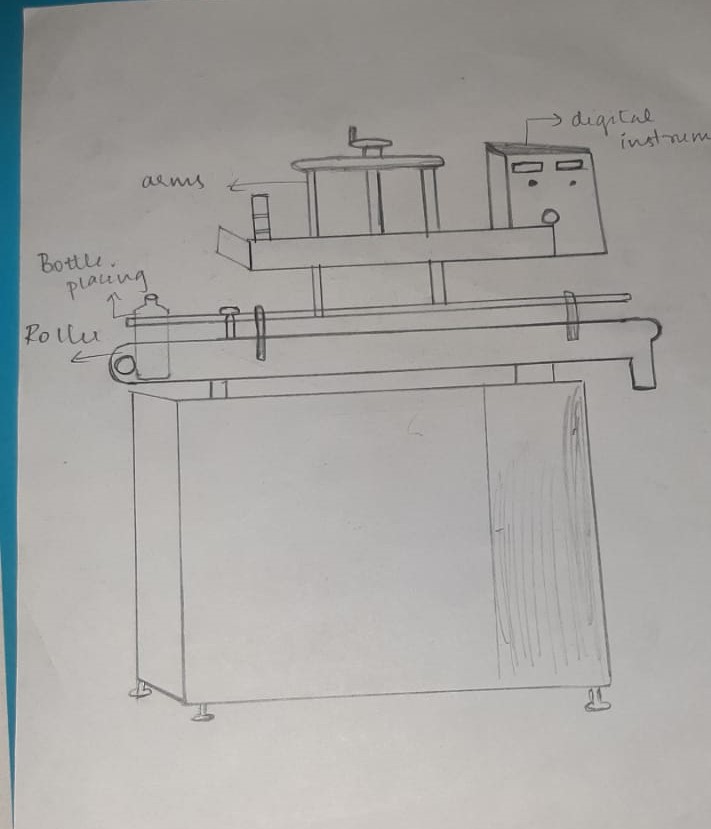 digital
instrum
arms
Bottle.
placing
Roller